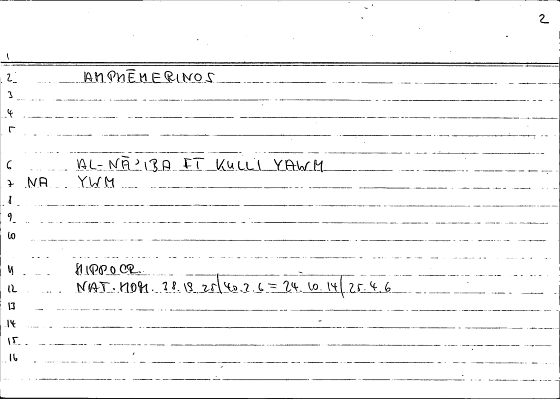 2
1
2 AMPHĒMERINOS
3
4
5
6 AL-NĀ'IBA FĪ KULLI YAWM
7 NA YWM
8
9
10
11 HIPPOCR.
12 NAT. HOM. 28.19.25/40.2.6 = 24.10.14/25.4.6
13
14
15
16